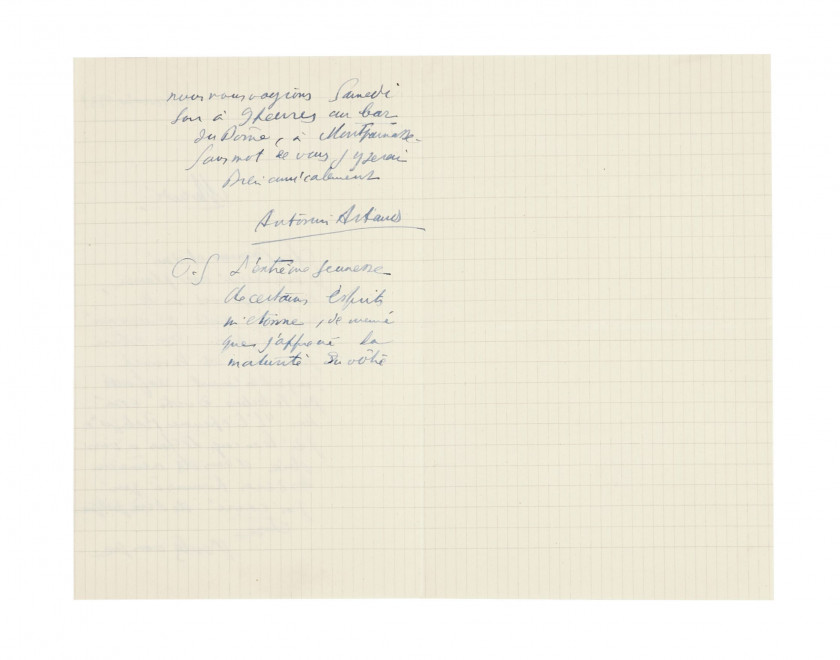 nous nous voyions Samedi
soir à 9 heures au bar
du Dôme, à Montparnasse.
Sans mot de vous j'y serai
Bien amicalement
Antonin Artaud
P.S L'extrême jeunesse
de certains Esprits
m'étonne, de même
que j'apprécie la
maturité du vôtre